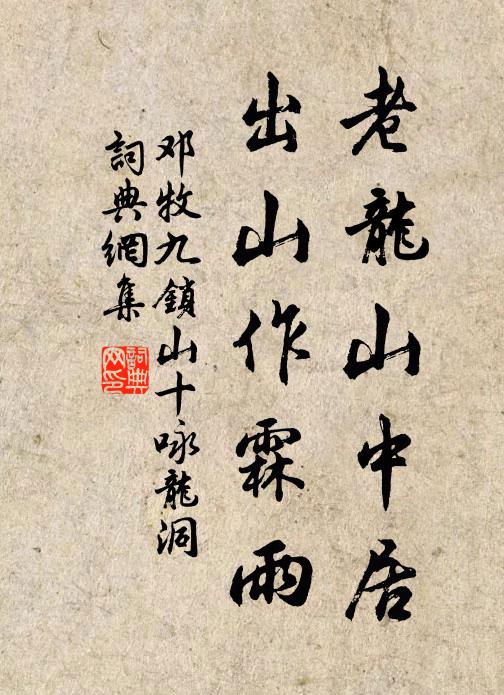 老龍山中居
出山作霖雨
邓牧九鎖山十咏龍洞
詞典網集
詞典
网印